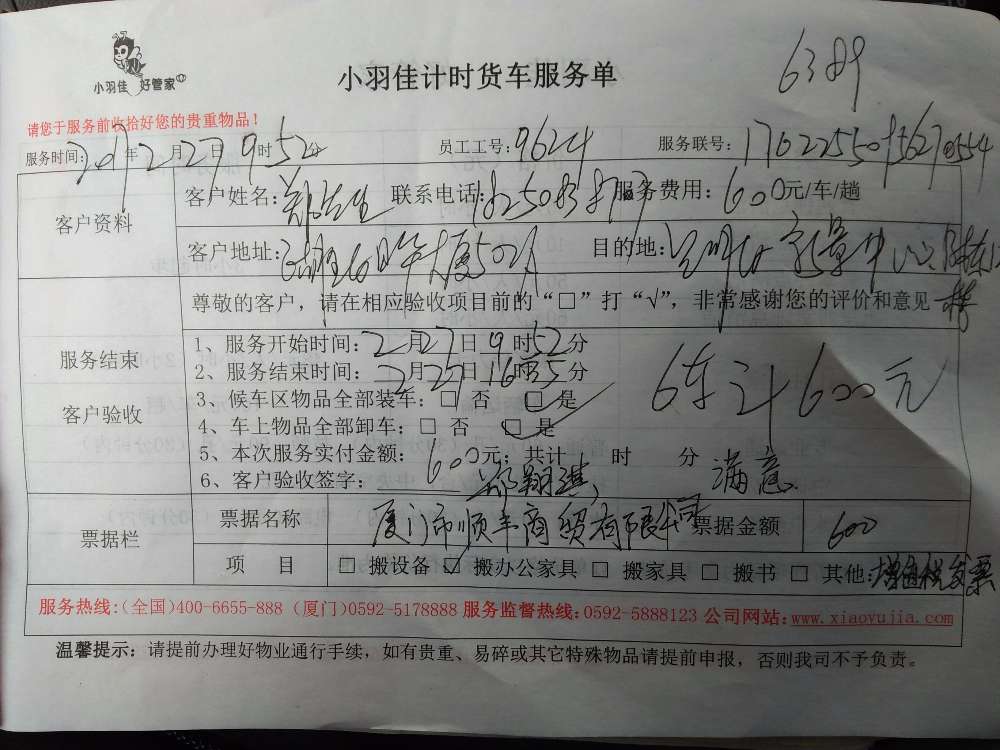 小羽佳 好管家
小羽佳计时货车服务单
6389
请您于服务前收拾好您的贵重物品！
服务时间：2017年2月27日9时52分 员工工号：9624 服务联号：
客户资料
客户姓名：郑先生 联系电话： 服务费用：600元/车/趟
客户地址：大厦502A 目的地：
尊敬的客户，请在相应验收项目前的“□”打“√”，非常感谢您的评价和意见
服务结束
客户验收
1、服务开始时间：2月27日9时52分
2、服务结束时间：2月27日16时35分
3、候车区物品全部装车：□ 否 □ 是
4、车上物品全部卸车：□ 否 □ 是
6车计600元
5、本次服务实付金额：600元；共计 时 分
6、客户验收签字：郑翔琪 满意
票据栏
票据名称 厦门市顺丰商贸有限公司 票据金额 600
项 目 □ 搬设备 ☑ 搬办公家具 □ 搬家具 □ 搬书 □ 其他：增值税发票
服务热线：（全国）400-6655-888（厦门）0592-5178888 服务监督热线：0592-5888123 公司网站：www.xiaoyujia.com
温馨提示：请提前办理好物业通行手续，如有贵重、易碎或其它特殊物品请提前申报，否则我司不予负责。